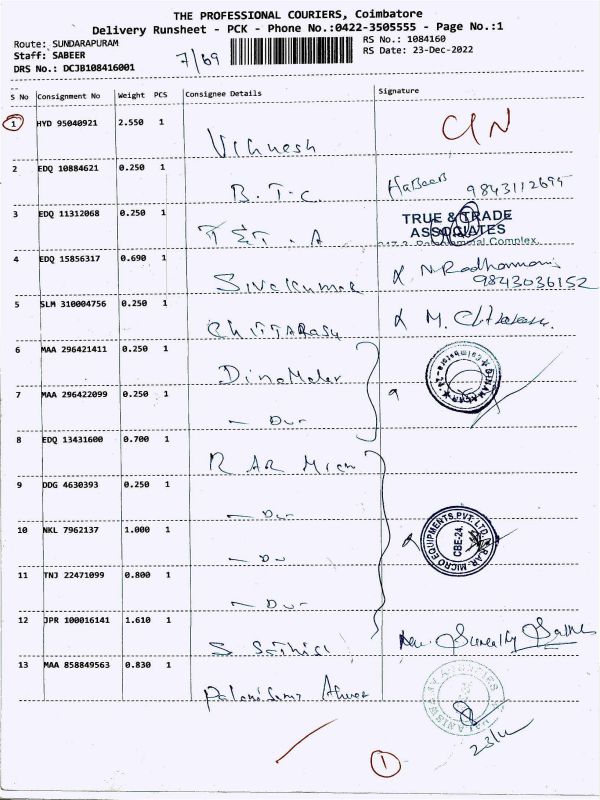 THE PROFESSIONAL COURIERS, Coimbatore
Delivery Runsheet - PCK - Phone No.:0422-3505555 - Page No.:1
Route: SUNDARAPURAM RS No.: 1084160
Staff: SABEER 7/69 RS Date: 23-Dec-2022
DRS No.: DCJB108416001
S No Consignment No Weight PCS Consignee Details Signature
1 HYD 95040921 2.550 1 Vignesh
2 EDQ 10884621 0.250 1 B.T.C HaBeeB 9843112695
3 EDQ 11312068 0.250 1 T &T. A TRUE & TRADE
ASSOCIATES
4 EDQ 15856317 0.690 1 Sivakumar N. Radhamani
9843036152
5 SLM 310004756 0.250 1 Chittarasu M.
6 MAA 296421411 0.250 1 DinaMalar DINAMALAR
7 MAA 296422099 0.250 1 - Du -
8 EDQ 13431600 0.700 1 R AR Micro
9 DDG 4630393 0.250 1 - Du
10 NKL 7962137 1.000 1 - Du MICRO EQUIPMENTS PVT. LTD. CBE-24.
11 TNJ 22471099 0.800 1 - Du -
12 JPR 100016141 1.610 1 S Sathish
13 MAA 858849563 0.830 1
1